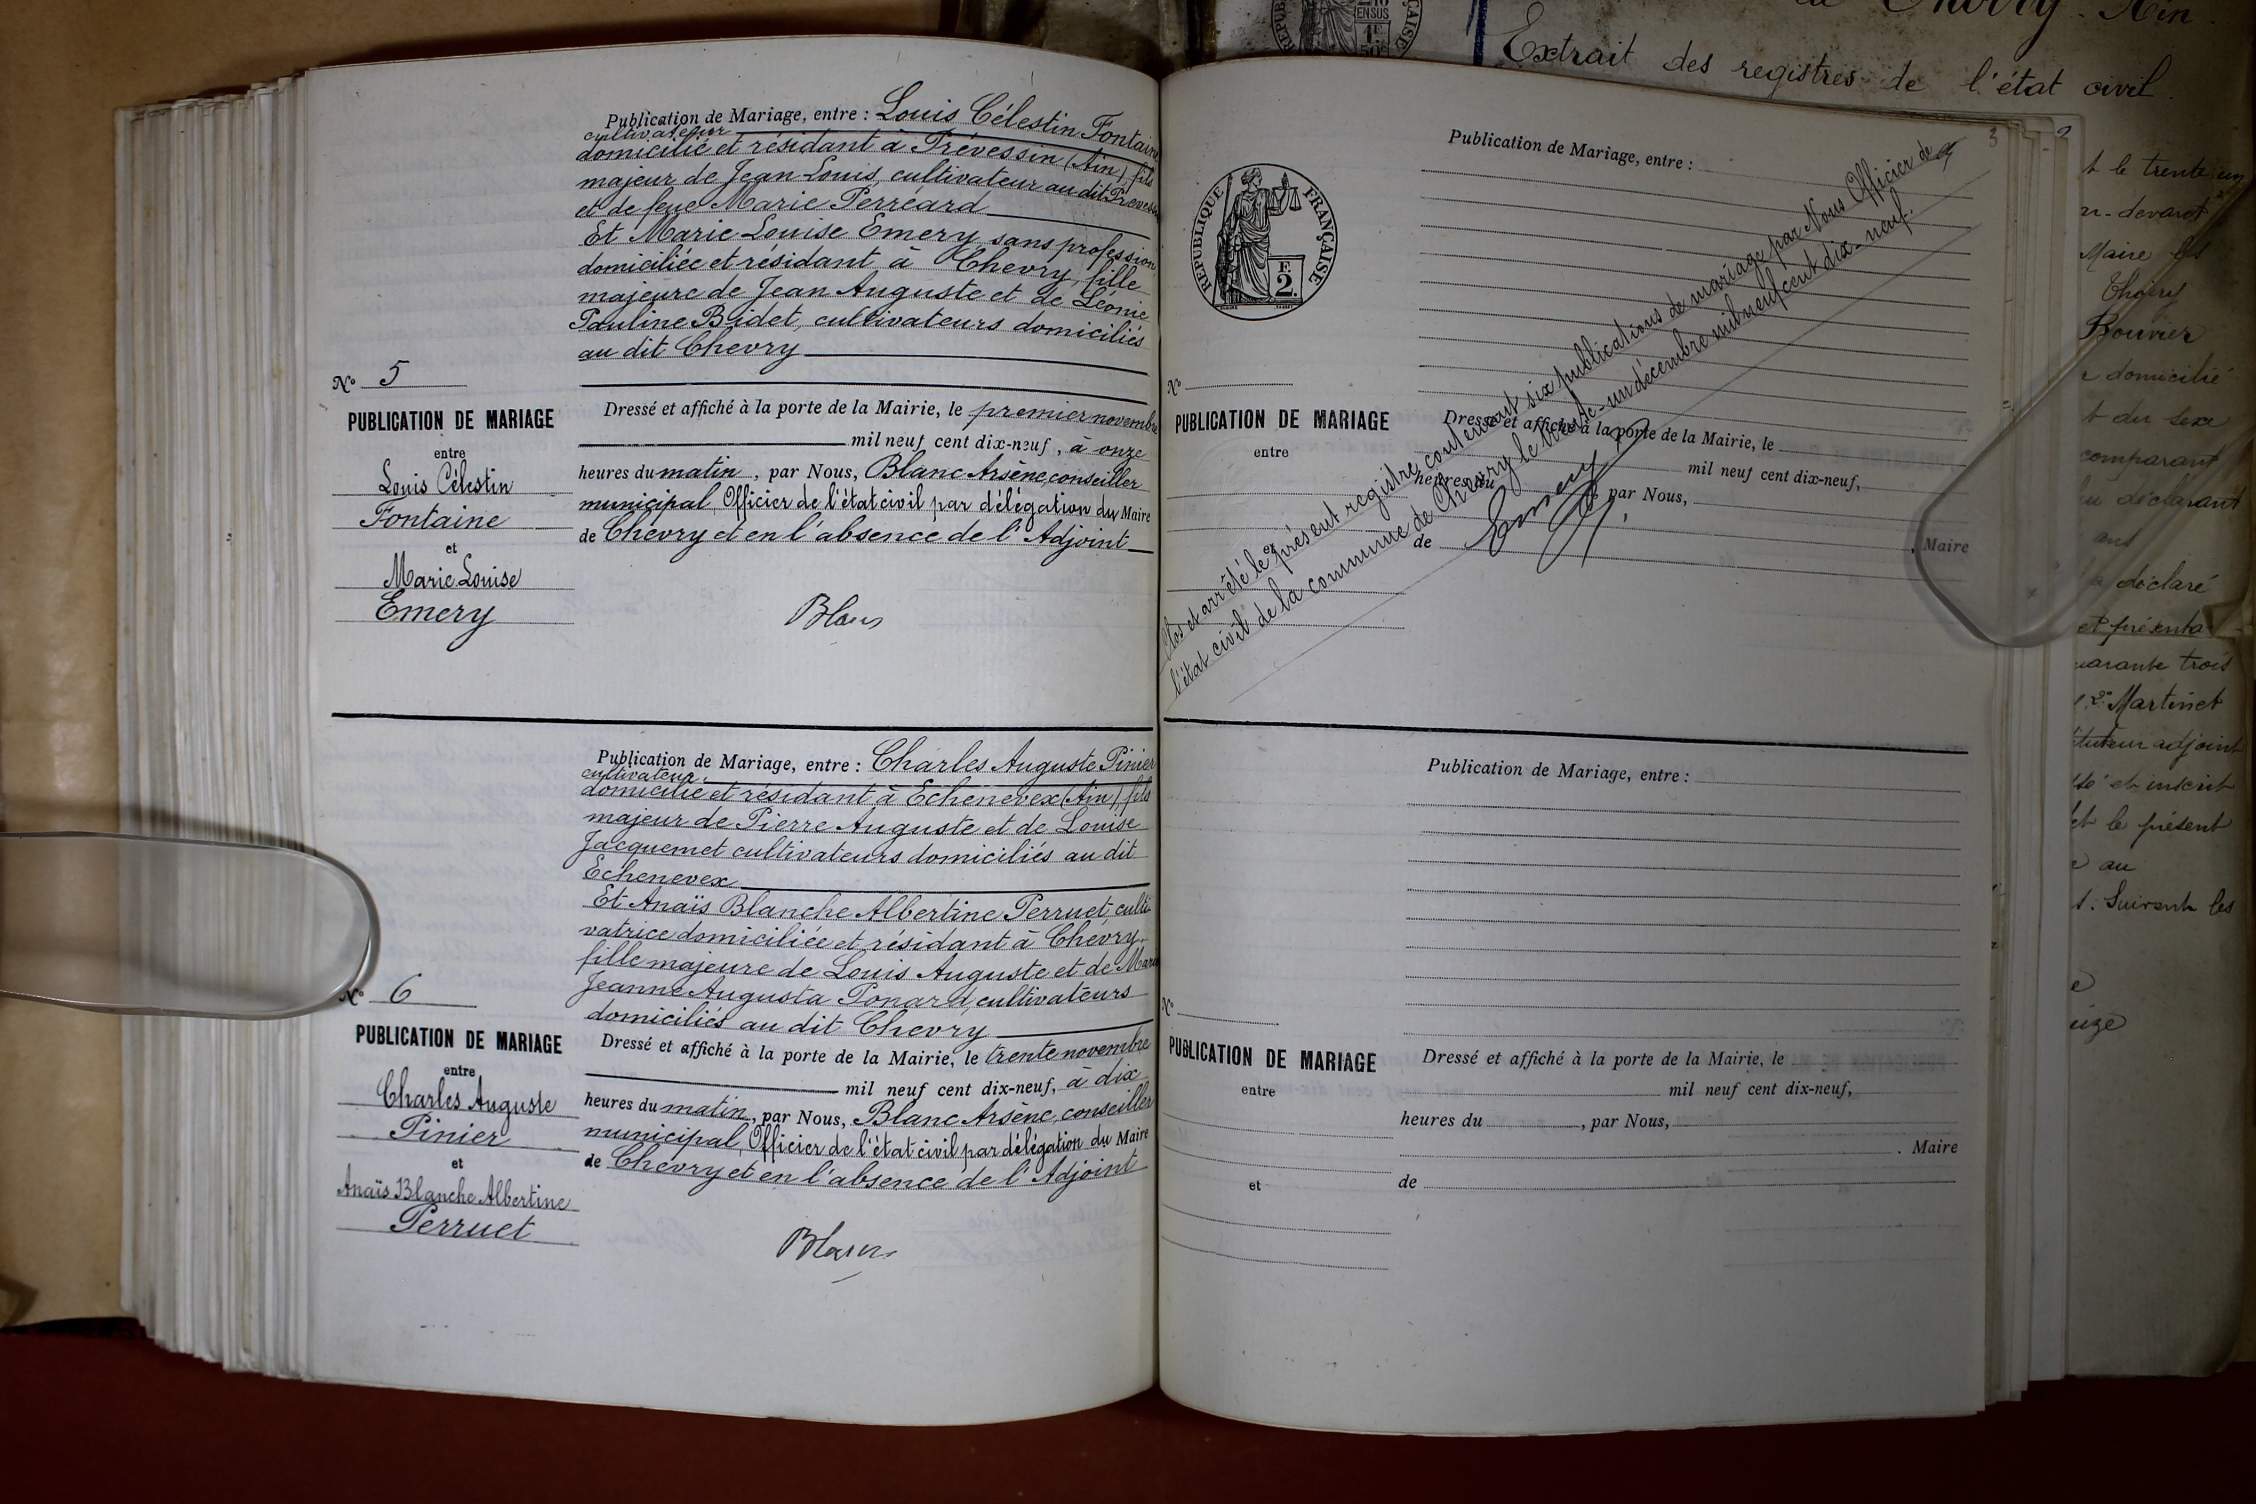 Publication de Mariage, entre : Louis Célestin Fontaine
cultivateur
domicilié et résidant à Prévessin (Ain), fils
majeur de Jean Louis, cultivateur au dit Prévessin
et de feue Marie Perréard
Et Marie Louise Emery, sans profession
domiciliée et résidant à Chevry, fille
majeure de Jean Auguste et de Léonie
Pauline Bidet, cultivateurs domiciliés
au dit Chevry
N° 5
PUBLICATION DE MARIAGE
entre
Louis Célestin
Fontaine
et
Marie Louise
Emery
Dressé et affiché à la porte de la Mairie, le premier novembre
mil neuf cent dix-neuf, à onze
heures du matin, par Nous, Blanc Arsène, conseiller
municipal, Officier de l'état civil par délégation du Maire
de Chevry et en l'absence de l'Adjoint
Blanc
Publication de Mariage, entre : Charles Auguste Pinier
cultivateur,
domicilié et résidant à Echenevex (Ain), fils
majeur de Pierre Auguste et de Louise
Jacquemet cultivateurs domiciliés au dit
Echenevex
Et Anaïs Blanche Albertine Perruet, culti-
vatrice domiciliée et résidant à Chevry,
fille majeure de Louis Auguste et de Marie
Jeanne Augusta Ponard, cultivateurs
domiciliés au dit Chevry
N° 6
PUBLICATION DE MARIAGE
entre
Charles Auguste
Pinier
et
Anaïs Blanche Albertine
Perruet
Dressé et affiché à la porte de la Mairie, le trente novembre
mil neuf cent dix-neuf, à dix
heures du matin, par Nous, Blanc Arsène, conseiller
municipal, Officier de l'état civil par délégation du Maire
de Chevry et en l'absence de l'Adjoint
Blanc
3
RÉPUBLIQUE FRANÇAISE
F.
2.
Publication de Mariage, entre :
Clos et arrêté le présent registre, contenant six publications de mariage par Nous Officier de
l'état civil de la commune de Chevry le trente-un décembre mil neuf cent dix-neuf.
Emery
N°
PUBLICATION DE MARIAGE
entre
Dressé et affiché à la porte de la Mairie, le
mil neuf cent dix-neuf,
heures du , par Nous,
, Maire
de
Publication de Mariage, entre :
N°
PUBLICATION DE MARIAGE
entre
et
Dressé et affiché à la porte de la Mairie, le
mil neuf cent dix-neuf,
heures du , par Nous,
. Maire
de
EN SUS
Chevry. Ain
Extrait des registres de l'état civil.
t le trente un
devant
Maire
Bouvier
domicilié
t du sexe
comparant
déclarant
ans
déclaré
et présenta
uarante trois
2° Martinet
tuteur adjoint
et inscrit
et le présent
au
t. Suivent les